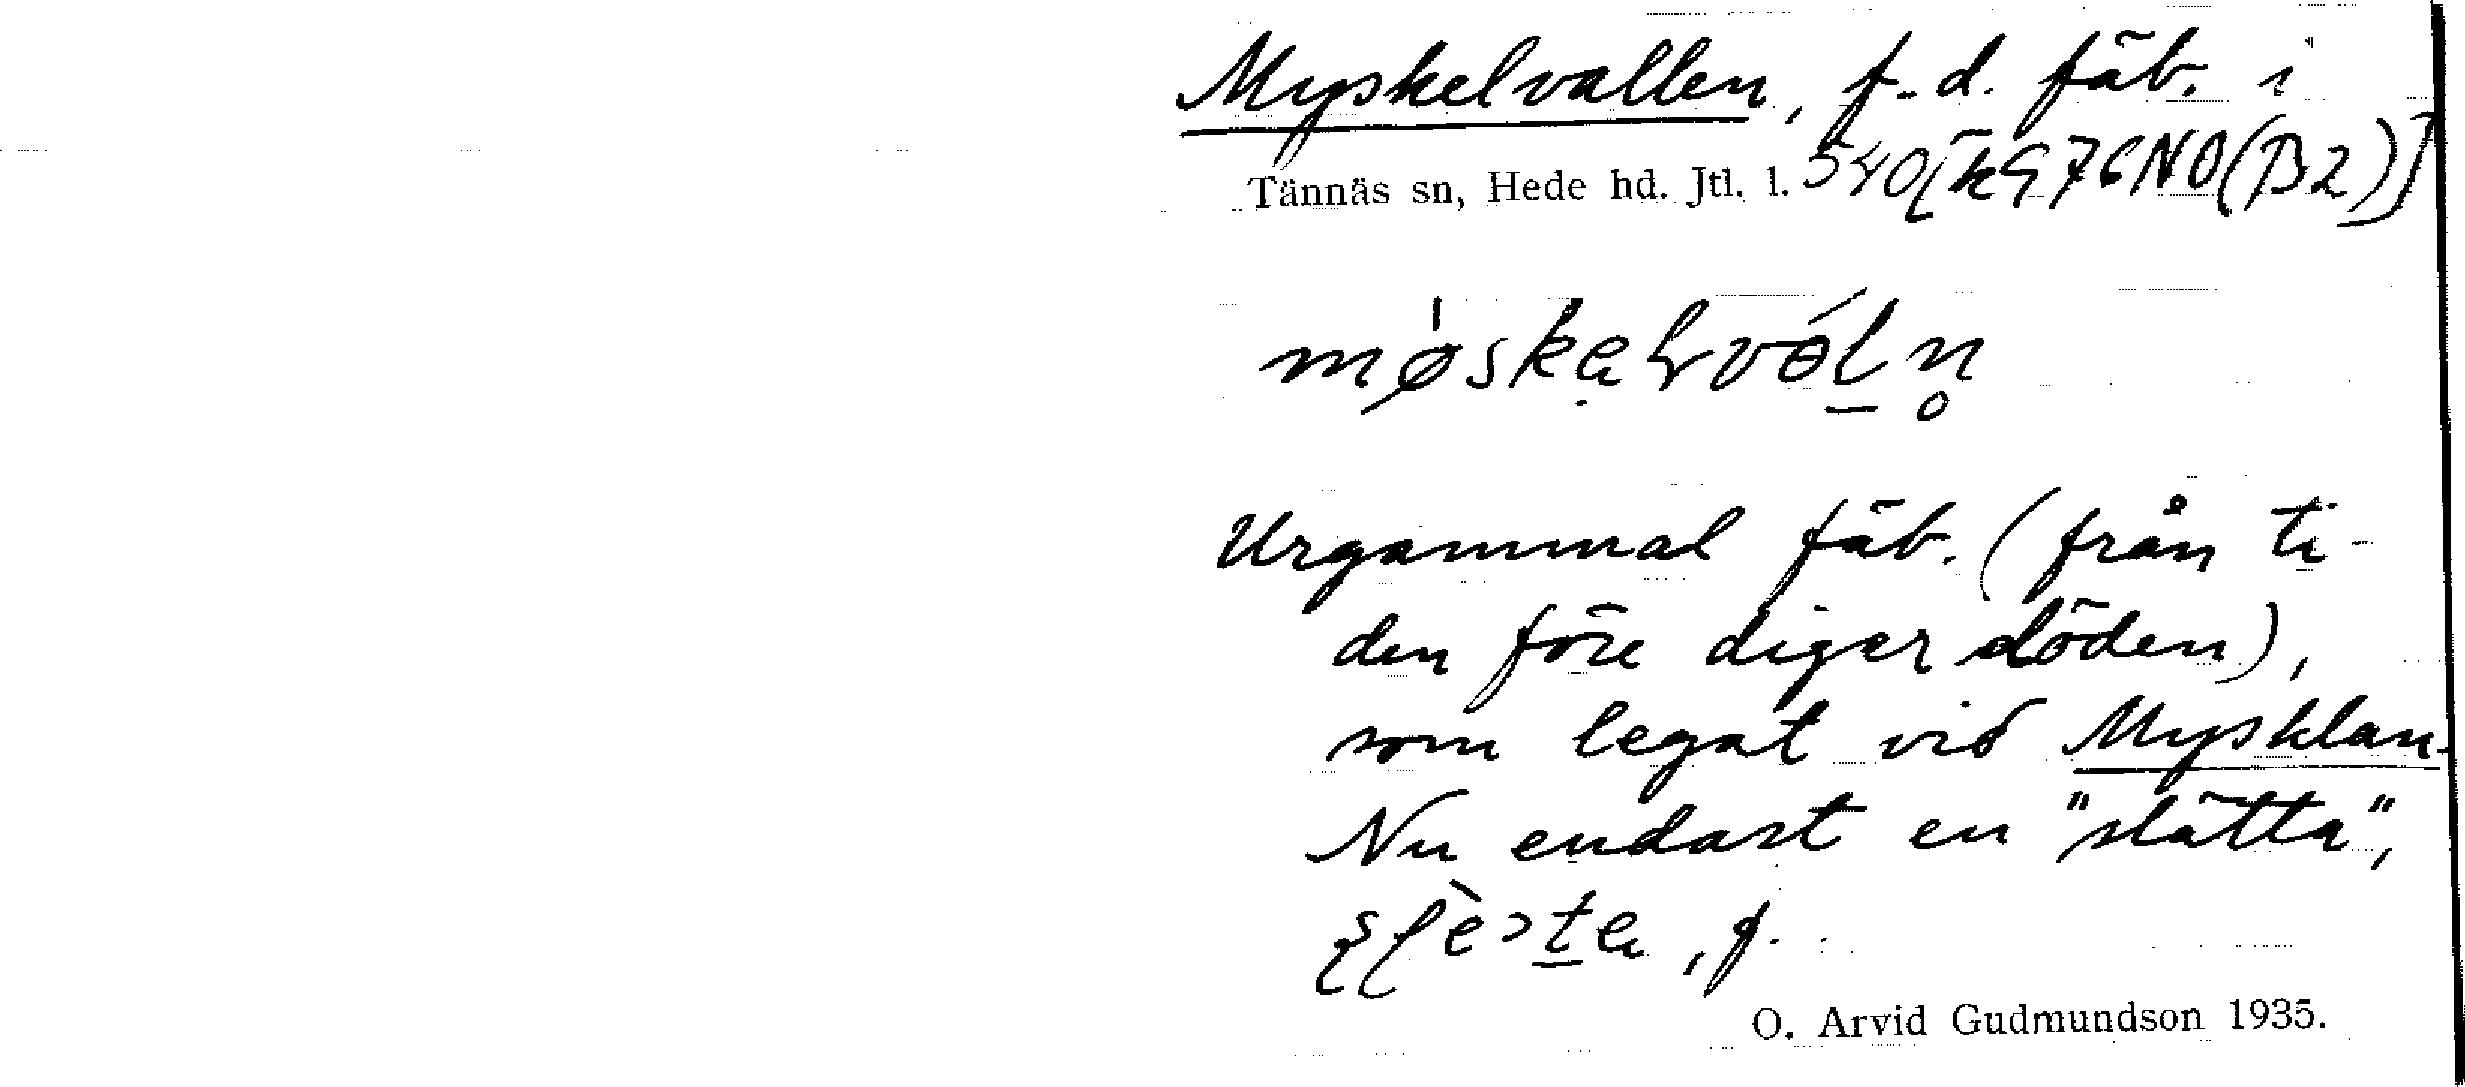 Myskelvallen, f.d. fäb. i
Tännäs sn, Hede hd. Jtl. l. 540[k976NO(B2)]
Urgammal fäb. (från ti-
den före digerdöden),
som legat vid Mysklan.
Nu endast en "slätta",
f.
O. Arvid Gudmundson 1935.